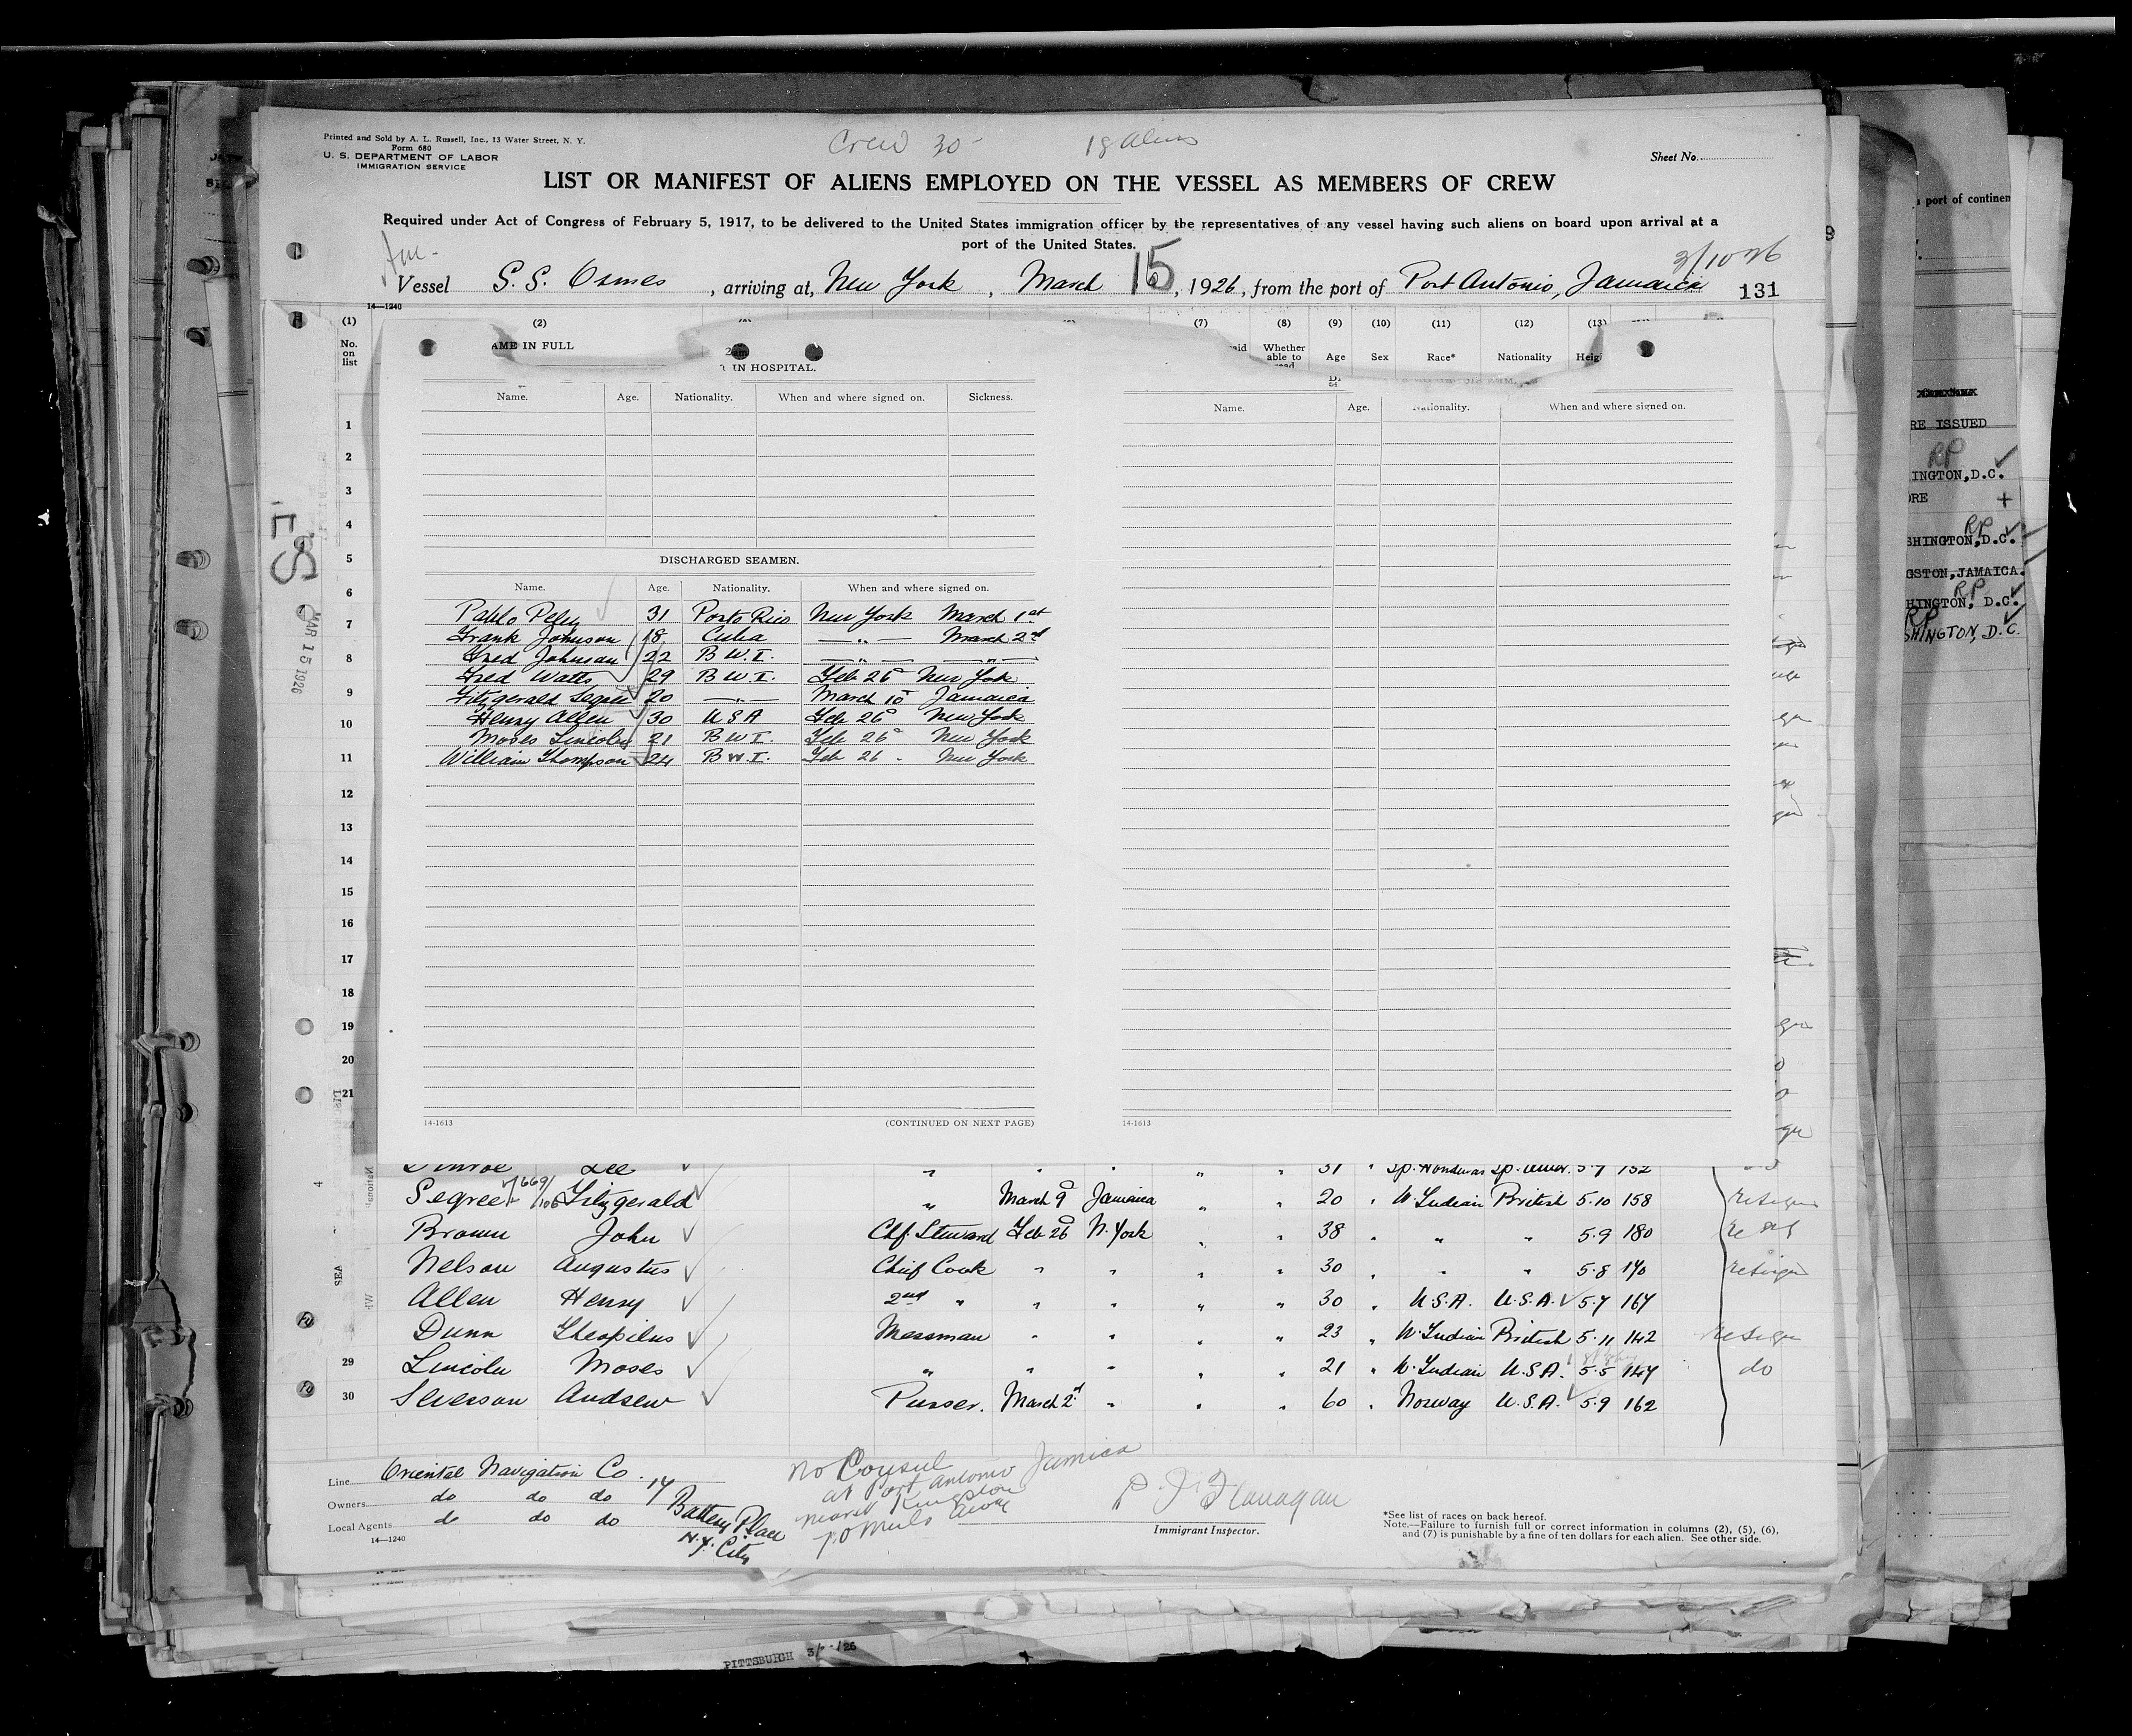 Printed and Sold by A. L. Russell, Inc., 13 Water Street, N. Y.
Form 680
U. S. DEPARTMENT OF LABOR
IMMIGRATION SERVICE
Crew 30 18 aliens
Sheet No.
LIST OR MANIFEST OF ALIENS EMPLOYED ON THE VESSEL AS MEMBERS OF CREW
Required under Act of Congress of February 5, 1917, to be delivered to the United States immigration officer by the representatives of any vessel having such aliens on board upon arrival at a
port of the United States.
3/10 26
Vessel S. S. Osmes, arriving at, New York, March 15, 1926, from the port of Port Antonio, Jamaica 131
14—1240
(1) (2) (7) (8) (9) (10) (11) (12) (13)
No. on list AME IN FULL Whether able to read Age Sex Race* Nationality Heig
IN HOSPITAL.
Name. Age. Nationality. When and where signed on. Sickness.
Name. Age. Nationality. When and where signed on.
1
2
3
4
5
6
7
8
9
10
11
12
13
14
15
16
17
18
19
20
21
DISCHARGED SEAMEN.
Name. Age. Nationality. When and where signed on.
Pablo 31 Porto Rico New York March 1st
Frank Johnson 18 Cuba — " — March 2nd
Fred Johnson 22 B W. I. — " — — " —
Fred Watts 29 B W. I. Feb 26 New York
Fitzgerald Segree 20 — " — March 10 Jamaica
Henry Allen 30 U S A Feb 26 New York
Moses Lincoln 21 B W I. Feb 26 New York
William Thompson 24 B W. I. Feb 26 New York
14-1613 (CONTINUED ON NEXT PAGE)
14-1613
MAR 15 1926
Lee " " " " " 31 " Sp. Honduras Sp. Amer. 5.7 152
Segree Fitzgerald " March 9 Jamaica " " 20 " W. Indian British 5.10 158
Brown John Chf. Steward Feb 26 N. York " " 38 " " " 5.9 180
Nelson Augustus Chief Cook " " " " 30 " " " 5.8 170
Allen Henry 2nd " " " " " 30 " U.S.A. U.S.A. 5.7 167
Dunn Theopilus Messman " " " " 23 " W. Indian British 5.11 142
29 Lincoln Moses " " " " " 21 " W. Indian U.S.A. 5.5 147 do
30 Severson Andrew Purser. March 2d " " " 60 " Norway U.S.A. 5.9 162
Line Oriental Navigation Co.
Owners do do do 17 Battery Place
Local Agents do do do N.Y. City
14—1240
No Consul
at Port Antonio Jamica
nearest Kingston
70 Miles away
P. J. Flanagan
Immigrant Inspector.
*See list of races on back hereof.
Note.—Failure to furnish full or correct information in columns (2), (5), (6),
and (7) is punishable by a fine of ten dollars for each alien. See other side.
port of continen
RE ISSUED
RP
INGTON, D.C.
ORE +
RP
SHINGTON, D.C.
GSTON, JAMAICA.
RP
HINGTON, D.C.
RP
SHINGTON, D.C.
PITTSBURGH